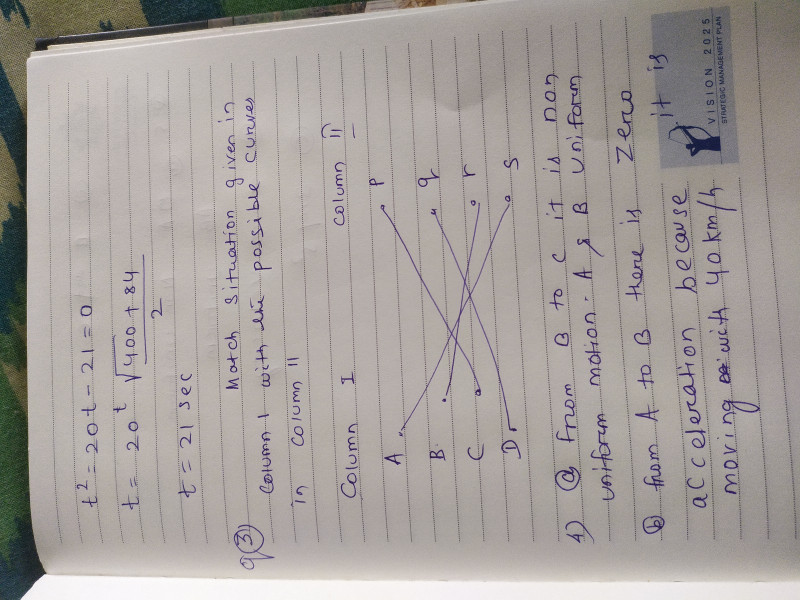 t² = 20t - 21 = 0
t = 20 t √400 + 84
2
t = 21 sec
Q(3) Match situation given in
column I with the possible curves
in column II
Column I Column II
A p
B q
C r
D S
4) (a) From B to C it is non
uniform motion. A & B uniform
(b) from A to B there is zero
acceleration because it is
moving with 40 km/h
VISION 2025
STRATEGIC MANAGEMENT PLAN